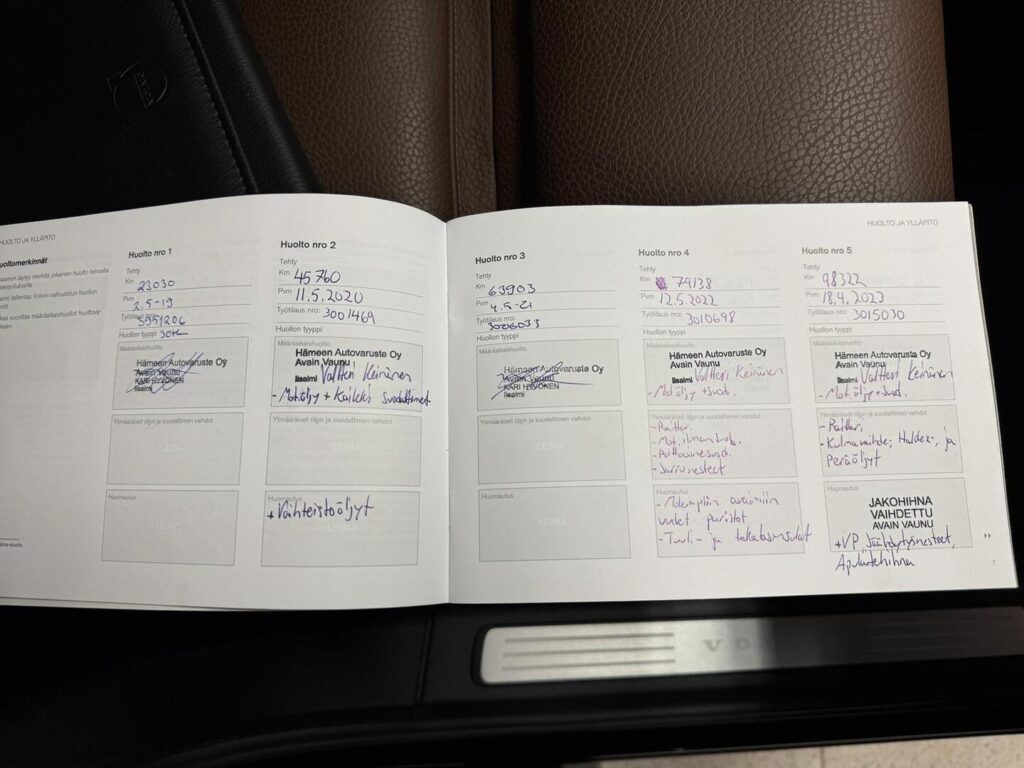 HUOLTO JA YLLÄPITO
HUOLTO JA YLLÄPITO
uoltomerkinnät
Huolto nro 1
Tehty
Km 23030
Pvm 2.5-19
Työtilaus nro: 5551206
Huollon tyyppi
Määräaikaishuolto
Hämeen Autovaruste Oy
Avain Vaunu
KARI HOIVONEN
Iisalmi
Ylimääräiset öljyn ja suodattimen vaihdot
LEIMA
Huomautus
LEIMA
Huolto nro 2
Tehty
Km 45760
Pvm 11.5.2020
Työtilaus nro: 3001469
Huollon tyyppi
Määräaikaishuolto
Hämeen Autovaruste Oy
Avain Vaunu
Iisalmi Valtteri Keinänen
- Mot.öljy + Kaikki suodattimet
Ylimääräiset öljyn ja suodattimen vaihdot
LEIMA
Huomautus
+ Vaihteistoöljyt
Huolto nro 3
Tehty
Km 63903
Pvm 4.5-21
Työtilaus nro:
Huollon tyyppi
Määräaikaishuolto
Hämeen Autovaruste Oy
Avain Vaunu
KARI HOIVONEN
Iisalmi
Ylimääräiset öljyn ja suodattimen vaihdot
LEIMA
Huomautus
LEIMA
Huolto nro 4
Tehty
Km 79138
Pvm 12.5.2022
Työtilaus nro: 3010698
Huollon tyyppi
Määräaikaishuolto
Hämeen Autovaruste Oy
Avain Vaunu
Iisalmi Valtteri Keinänen
- Mot.öljy + suod.
Ylimääräiset öljyn ja suodattimen vaihdot
- Raitisr.
- Mot.ilmansuod.
- Polttoainesuod.
- Jarrunesteet
Huomautus
- Molempiin avaimiin
uudet paristot
- Tuuli- ja takalasinsulat
Huolto nro 5
Tehty
Km 98322
Pvm 18.4.2023
Työtilaus nro: 3015030
Huollon tyyppi
Määräaikaishuolto
Hämeen Autovaruste Oy
Avain Vaunu
Iisalmi Valtteri Keinänen
- Mot.öljy + suod.
Ylimääräiset öljyn ja suodattimen vaihdot
- Kulmavaihde, Haldex-, ja
Peräöljyt
Huomautus
JAKOHIHNA
VAIHDETTU
AVAIN VAUNU
+ VP, Jäähdytysnesteet,
Apulaitehihna
7